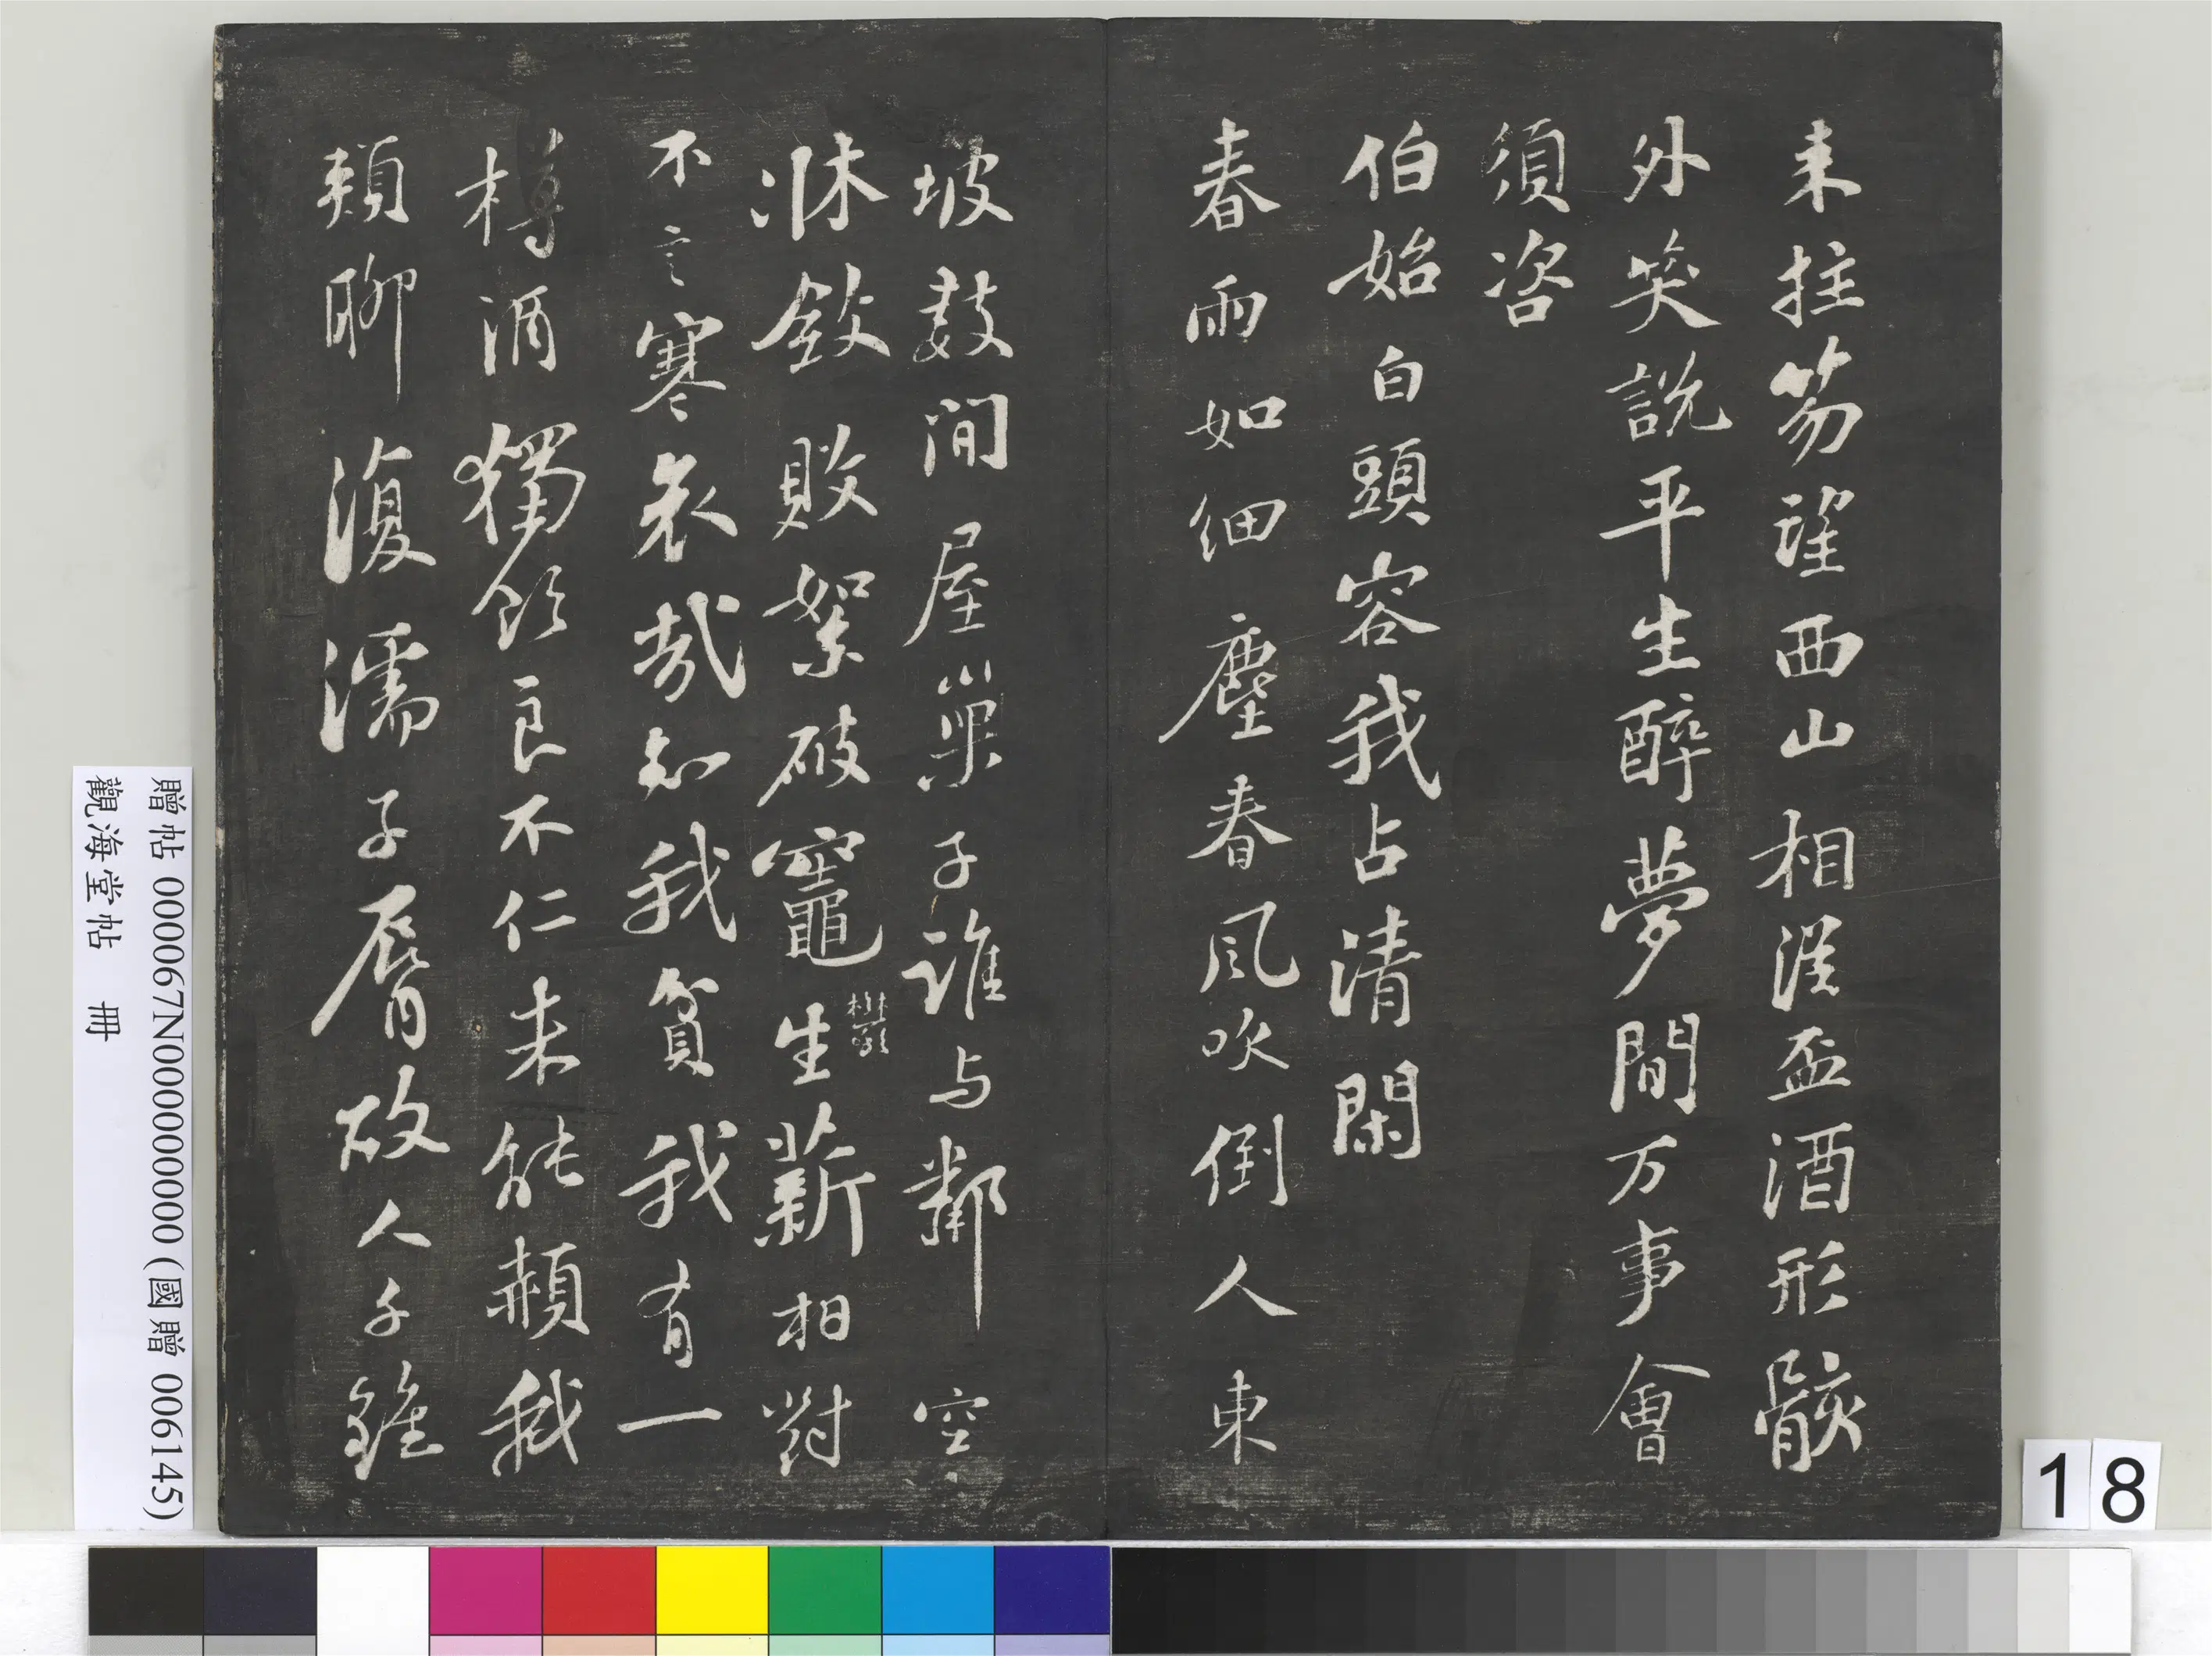 来拄笏望西山相逢盃酒形骸
外笑說平生醉夢間万事會
須咨
伯始白頭容我占清閑
春雨如細塵春風吹倒人東
坡數間屋巢子誰与鄰空
牀斂敗絮破竈鬱生薪相對
不言寒哀哉知我貧我有一
樽酒獨飲良不仁未能赬我
頰聊復濡子脣故人千鍾
贈帖 000067N000000000 (國贈 006145)
觀海堂帖 冊
18